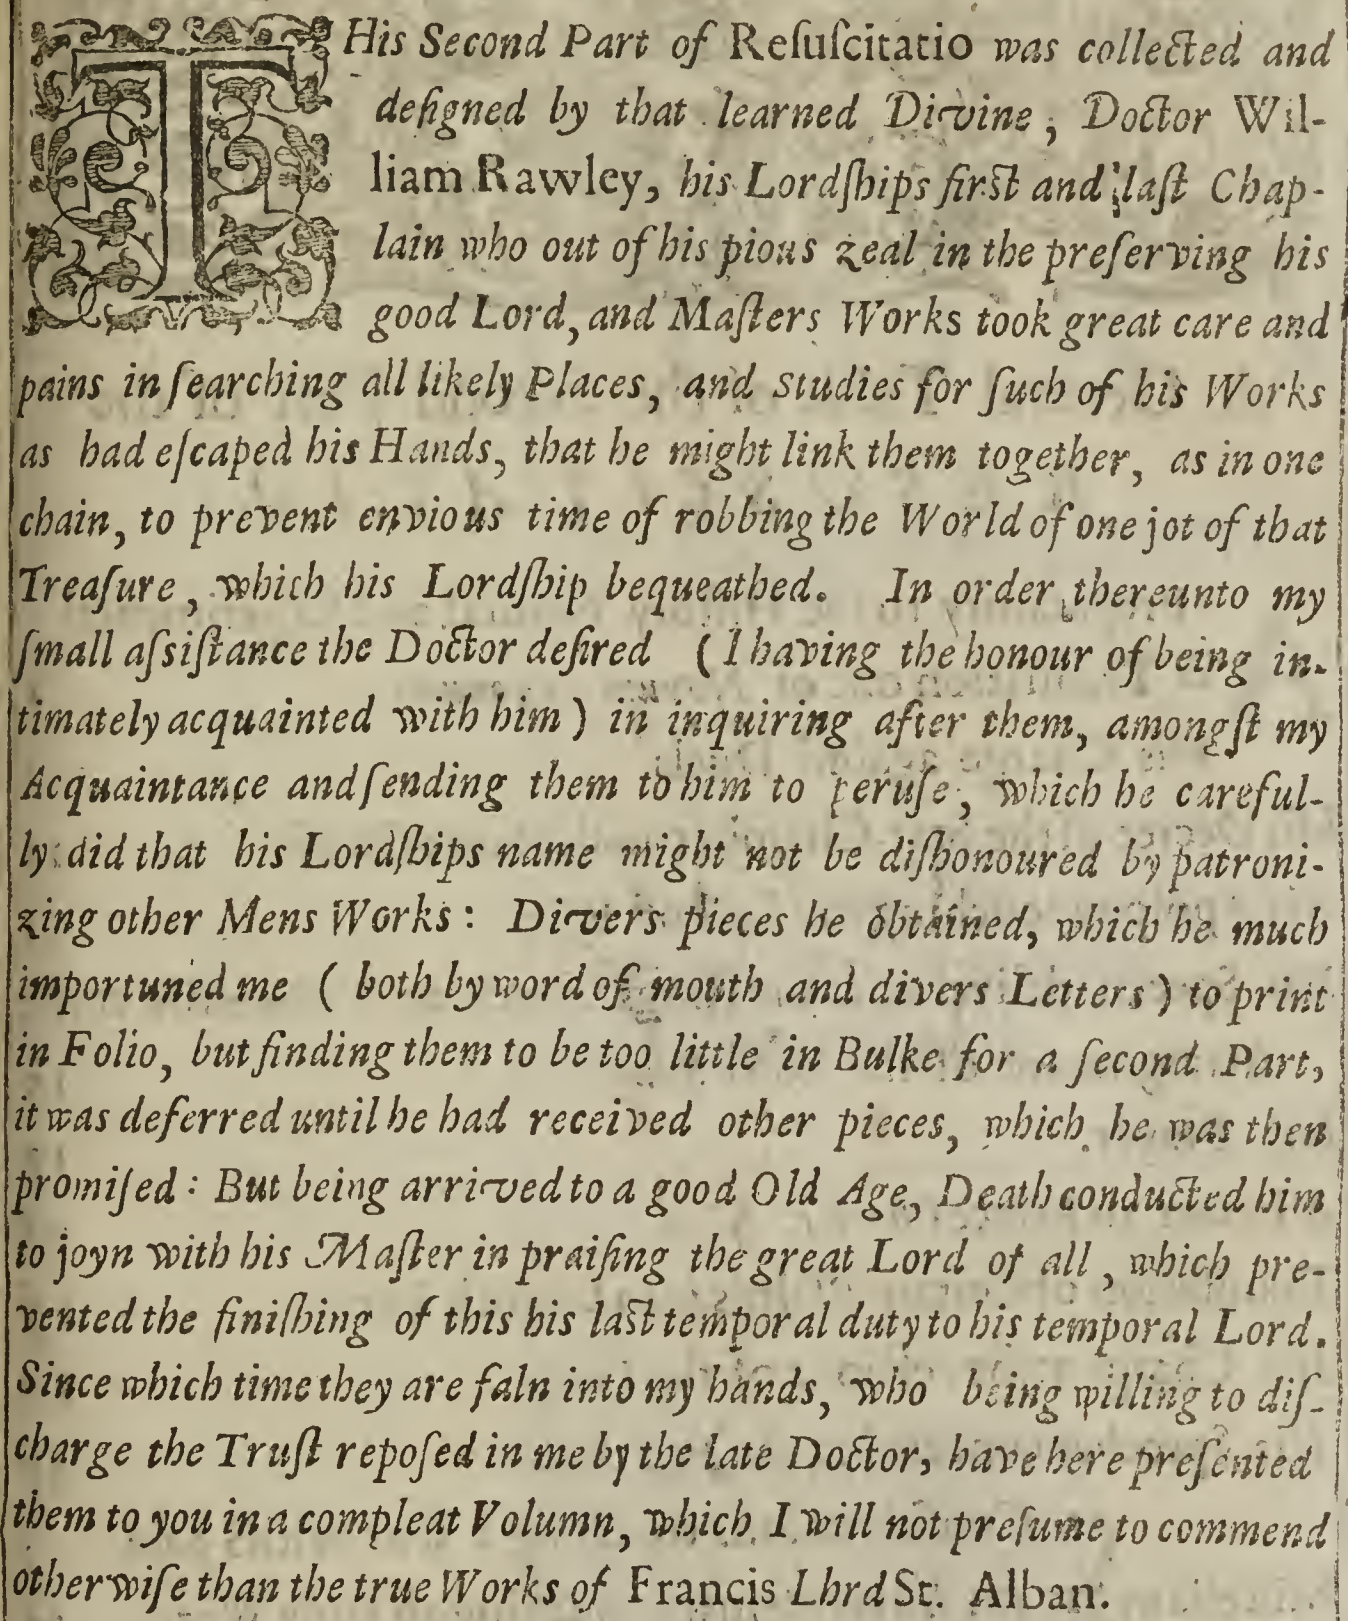 THis Second Part of Reſuſcitatio was collected and
deſigned by that learned Divine, Doctor Wil-
liam Rawley, his Lordſhips firſt and laſt Chap-
lain who out of his pious zeal in the preſerving his
good Lord, and Maſters Works took great care and
pains in ſearching all likely Places, and Studies for ſuch of his Works
as had eſcaped his Hands, that he might link them together, as in one
chain, to prevent envious time of robbing the World of one jot of that
Treaſure, which his Lordſhip bequeathed. In order thereunto my
ſmall aſsiſtance the Doctor deſired (I having the honour of being in-
timately acquainted with him) in inquiring after them, amongſt my
Acquaintance and ſending them to him to peruſe, which he careful-
ly did that his Lordſhips name might not be diſhonoured by patroni-
zing other Mens Works: Divers pieces he obtained, which he much
importuned me (both by word of mouth and divers Letters) to print
in Folio, but finding them to be too little in Bulke for a ſecond Part,
it was deferred until he had received other pieces, which he was then
promiſed: But being arrived to a good Old Age, Death conducted him
to joyn with his Maſter in praiſing the great Lord of all, which pre-
vented the finiſhing of this his laſt temporal duty to his temporal Lord.
Since which time they are faln into my hands, who being willing to diſ-
charge the Truſt repoſed in me by the late Doctor, have here preſented
them to you in a compleat Volumn, which I will not preſume to commend
otherwiſe than the true Works of Francis Lhrd St. Alban.